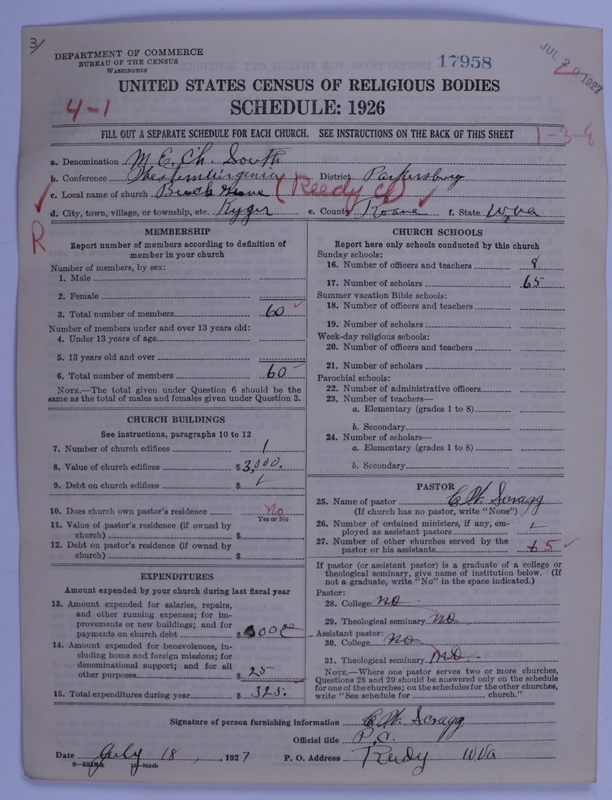 3/
DEPARTMENT OF COMMERCE
BUREAU OF THE CENSUS
WASHINGTON
17958
JUL 20 1927
UNITED STATES CENSUS OF RELIGIOUS BODIES
SCHEDULE: 1926
4-1
FILL OUT A SEPARATE SCHEDULE FOR EACH CHURCH. SEE INSTRUCTIONS ON THE BACK OF THIS SHEET
1-3-6
a. Denomination M.E. Ch. South
b. Conference District Parkersburg
c. Local name of church (Reedy C)
d. City, town, village, or township, etc. Kyger e. County Roane f. State W.Va
R
MEMBERSHIP
Report number of members according to definition of
member in your church
Number of members, by sex:
1. Male
2. Female
3. Total number of members 60
Number of members under and over 13 years old:
4. Under 13 years of age
5. 13 years old and over
6. Total number of members 60
NOTE.—The total given under Question 6 should be the
same as the total of males and females given under Question 3.
CHURCH BUILDINGS
See instructions, paragraphs 10 to 12
7. Number of church edifices 1
8. Value of church edifices $3,000.
9. Debt on church edifices $
10. Does church own pastor's residence No
Yes or No
11. Value of pastor's residence (if owned by
church) $
12. Debt on pastor's residence (if owned by
church) $
EXPENDITURES
Amount expended by your church during last fiscal year
13. Amount expended for salaries, repairs,
and other running expenses; for im-
provements or new buildings; and for
payments on church debt $
14. Amount expended for benevolences, in-
cluding home and foreign missions; for
denominational support; and for all
other purposes $25
15. Total expenditures during year $325.
CHURCH SCHOOLS
Report here only schools conducted by this church
Sunday schools:
16. Number of officers and teachers 8
17. Number of scholars 65
Summer vacation Bible schools:
18. Number of officers and teachers
19. Number of scholars
Week-day religious schools:
20. Number of officers and teachers
21. Number of scholars
Parochial schools:
22. Number of administrative officers
23. Number of teachers—
a. Elementary (grades 1 to 8)
b. Secondary
24. Number of scholars—
a. Elementary (grades 1 to 8)
b. Secondary
PASTOR
25. Name of pastor C.W. Scragg
(If church has no pastor, write "None")
26. Number of ordained ministers, if any, em-
ployed as assistant pastors
27. Number of other churches served by the
pastor or his assistants 5
If pastor (or assistant pastor) is a graduate of a college or
theological seminary, give name of institution below. (If
not a graduate, write "No" in the space indicated.)
Pastor:
28. College no
29. Theological seminary no
Assistant pastor:
30. College no
31. Theological seminary no
NOTE.—Where one pastor serves two or more churches,
Questions 28 and 29 should be answered only on the schedule
for one of the churches; on the schedules for the other churches,
write "See schedule for church."
Signature of person furnishing information C.W. Scragg
Official title P.C.
Date July 18, 1927 P. O. Address Reedy W.Va